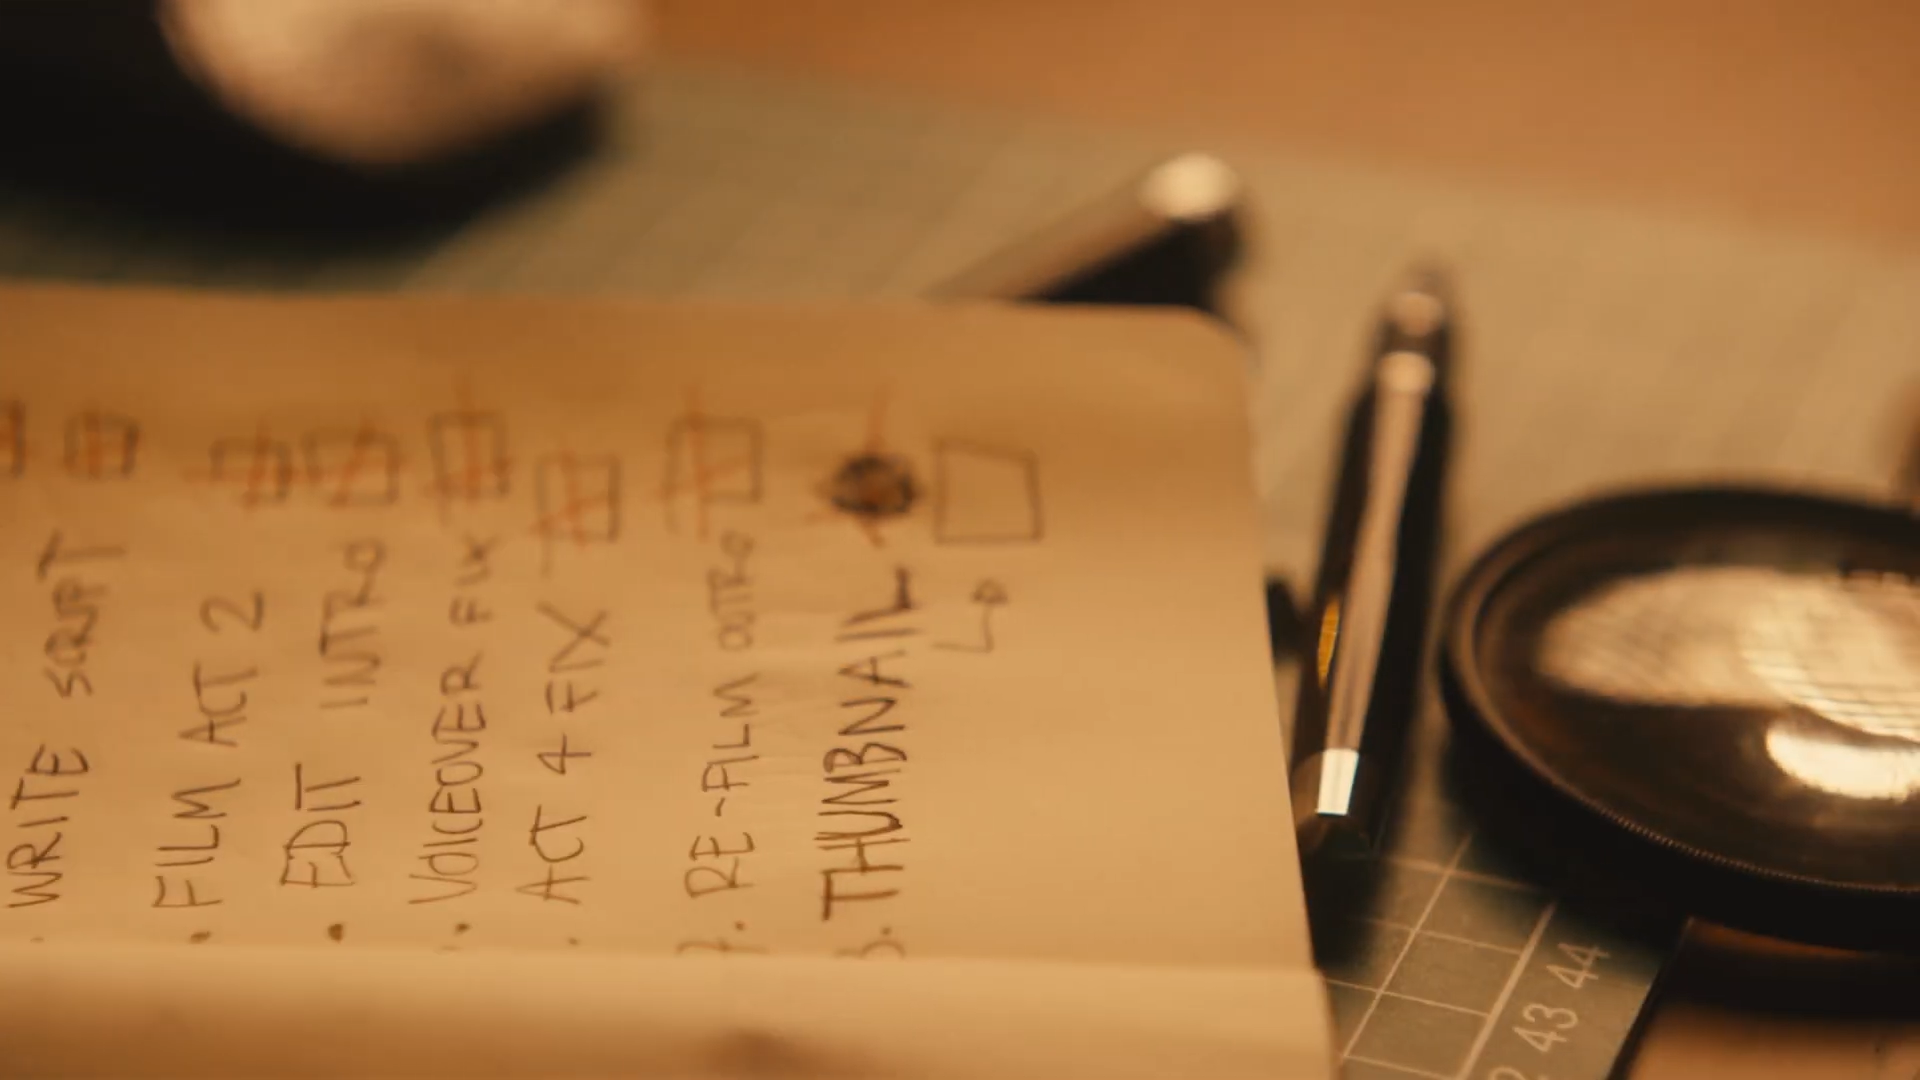 WRITE SCRIPT
• FILM ACT 2
• EDIT INTRO
• VOICEOVER FIX
• ACT 4 FIX
7. RE-FILM OUTRO
8. THUMBNAIL
43 44